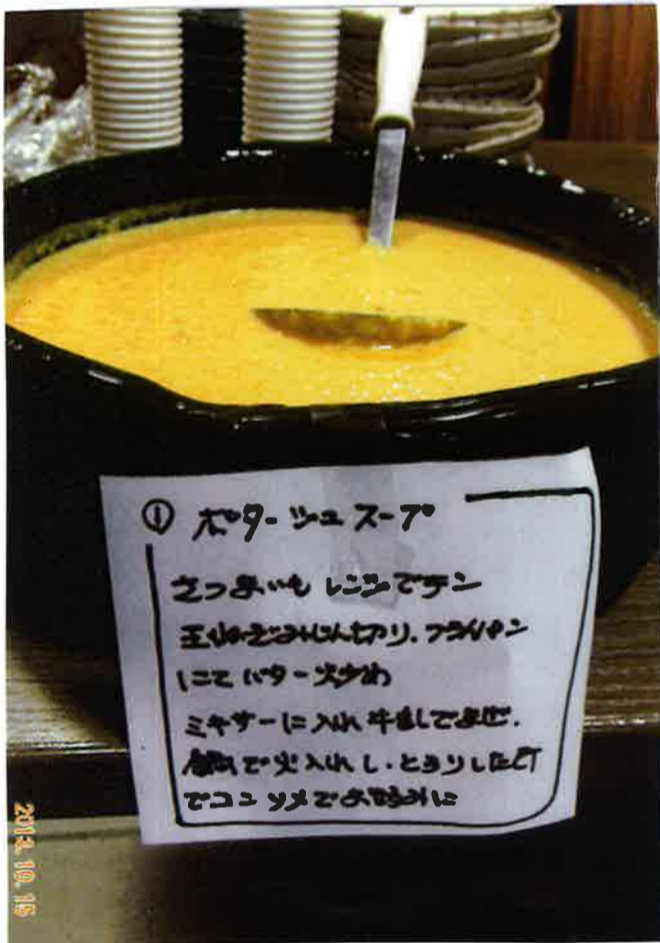 ① ポタージュスープ
さつまいも レンジでチン
玉ねぎみじん切り、フライパン
にて バター炒め
ミキサーに入れ 牛乳でまぜ、
鍋で火入れし、とろりしたら
でコンソメでお好みに
2012.10.15